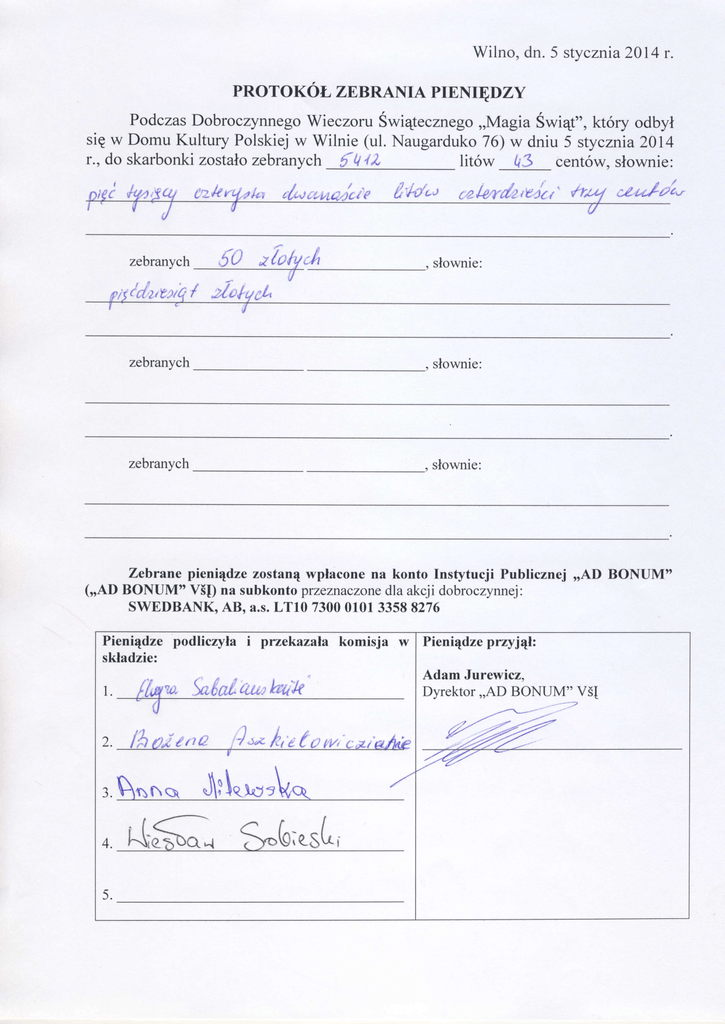 Wilno, dn. 5 stycznia 2014 r.
PROTOKÓŁ ZEBRANIA PIENIĘDZY
Podczas Dobroczynnego Wieczoru Świątecznego „Magia Świąt”, który odbył
się w Domu Kultury Polskiej w Wilnie (ul. Naugarduko 76) w dniu 5 stycznia 2014
r., do skarbonki zostało zebranych 5412 litów 43 centów, słownie:
pięć tysięcy czterysta dwanaście litów czterdzieści trzy centów
zebranych 50 złotych, słownie:
pięćdziesiąt złotych
zebranych , słownie:
zebranych , słownie:
Zebrane pieniądze zostaną wpłacone na konto Instytucji Publicznej „AD BONUM”
(„AD BONUM” VšĮ) na subkonto przeznaczone dla akcji dobroczynnej:
SWEDBANK, AB, a.s. LT10 7300 0101 3358 8276
Pieniądze podliczyła i przekazała komisja w
składzie:
1. Sabaliauskaitė
2. Bożena Aszkiełowiczianie
3. Anna Milewska
4. Wiesław Sobieski
5.
Pieniądze przyjął:
Adam Jurewicz,
Dyrektor „AD BONUM” VšĮ